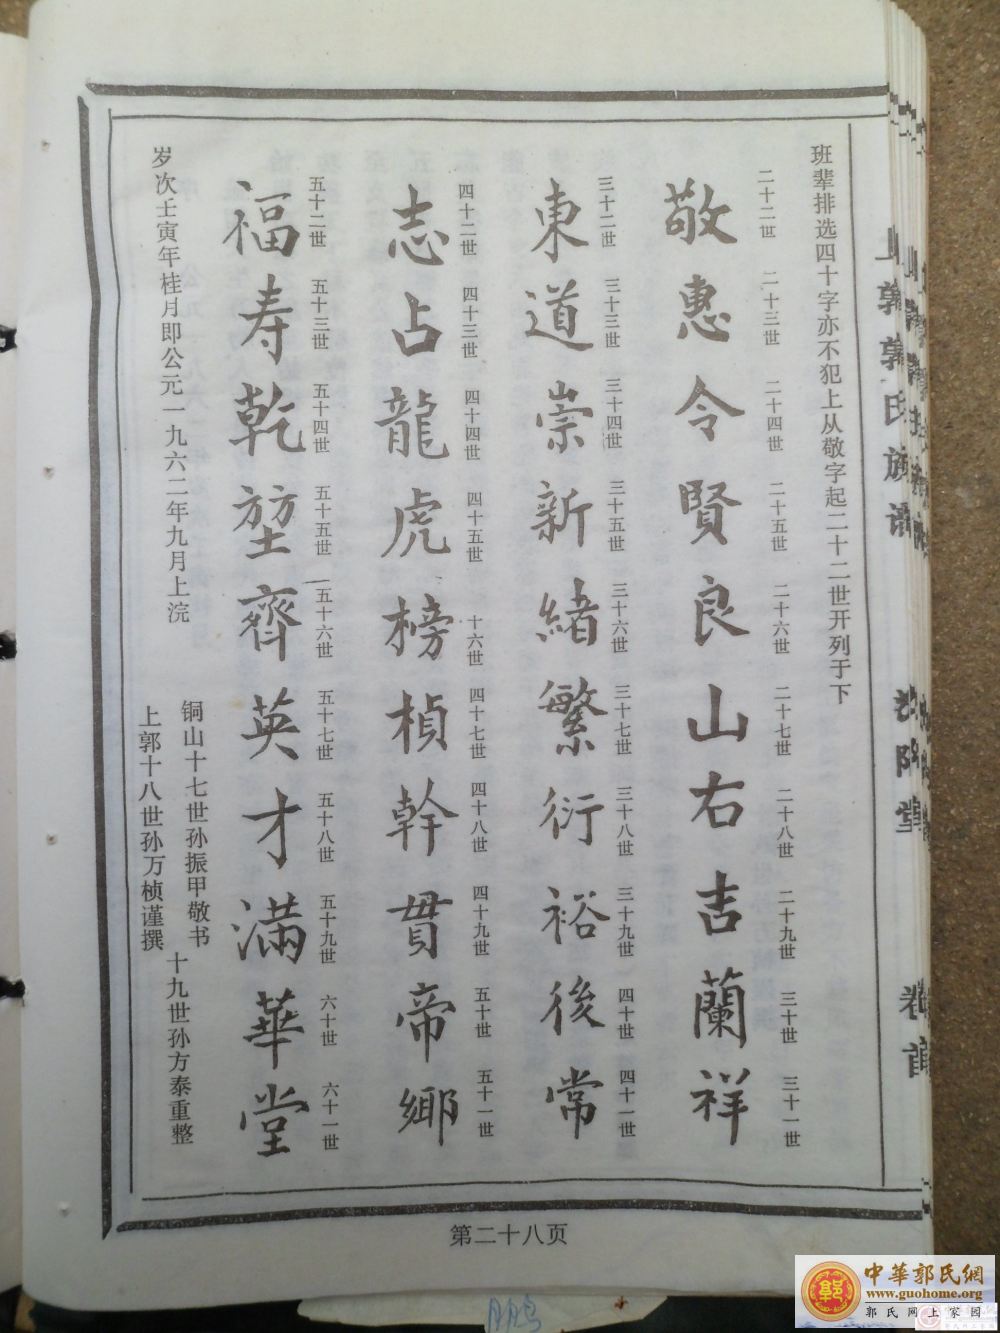 班辈排选四十字亦不犯上从敬字起二十二世开列于下
二十二世 二十三世 二十四世 二十五世 二十六世 二十七世 二十八世 二十九世 三十世 三十一世
敬惠令賢良山右吉蘭祥
三十二世 三十三世 三十四世 三十五世 三十六世 三十七世 三十八世 三十九世 四十世 四十一世
東道崇新緒繁衍裕後常
四十二世 四十三世 四十四世 四十五世 十六世 四十七世 四十八世 四十九世 五十世 五十一世
志占龍虎榜楨幹貫帝鄉
五十二世 五十三世 五十四世 五十五世 五十六世 五十七世 五十八世 五十九世 六十世 六十一世
福寿乾堃齊英才滿華堂
岁次壬寅年桂月即公元一九六二年九月上浣
铜山十七世孙振甲敬书
上郭十八世孙万桢谨撰
十九世孙方泰重整
上郭郭氏族谱
汾阳堂
卷首
第二十八页
中華郭氏網
www.guohome.org
郭氏网上家园